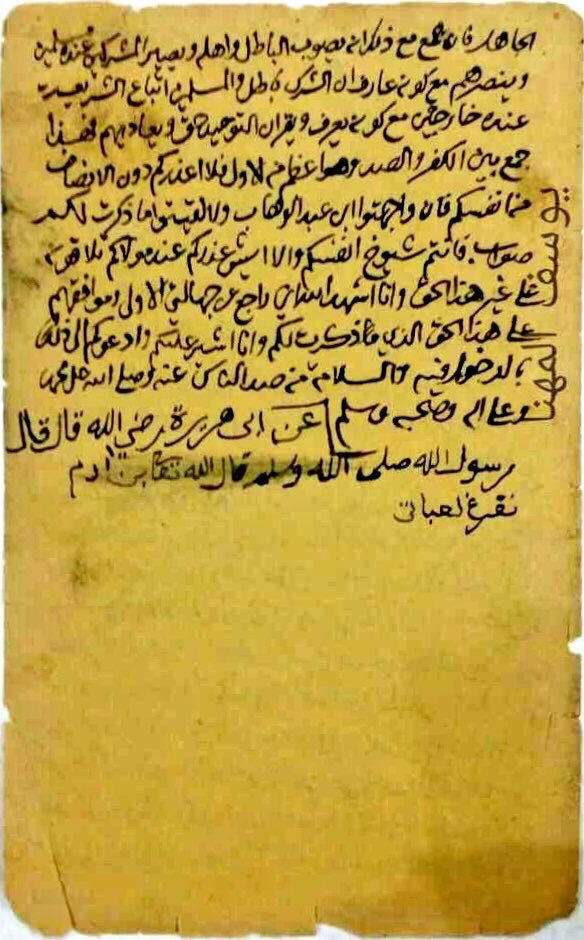 الجاهل فان جمع مع ذلك انه يصوب الباطل واهله ويصير المشركين عنده مسلمين
وينصرهم مع كونه عارف ان الشرك باطل والمسلمين اتباع الشريعة
عنده خارجين مع كونه يعرف ويقر ان التوحيد حق ويعاديهم فهذا
جمع بين الكفر والصد وهو اعظم من الاول فلا اعذركم دون الانصاف
من انفسكم فان واجهتوا ابن عبد الوهاب ولا لقيتوا ما ذكرت لكم
صواب فانتم شيوخ انفسكم والا ايش عذركم عند مولاكم تلاقونه
على غير هذا الحق وانا اشهد الله اني راجع عن جهالتي الاولى وموافقهم
على هذا الحق الذي ذكرت لكم وانا اشير عليكم وادعوكم الى ذلك
بالدخول فيه والسلامة من صد الناس عنه وصلى الله على محمد
وعلى اله وصحبه وسلم عن ابي هريرة رضي الله قال قال
رسول الله صلى الله وسلم قال الله تعا بن ادم
تفرغ لعباتي
يوسف